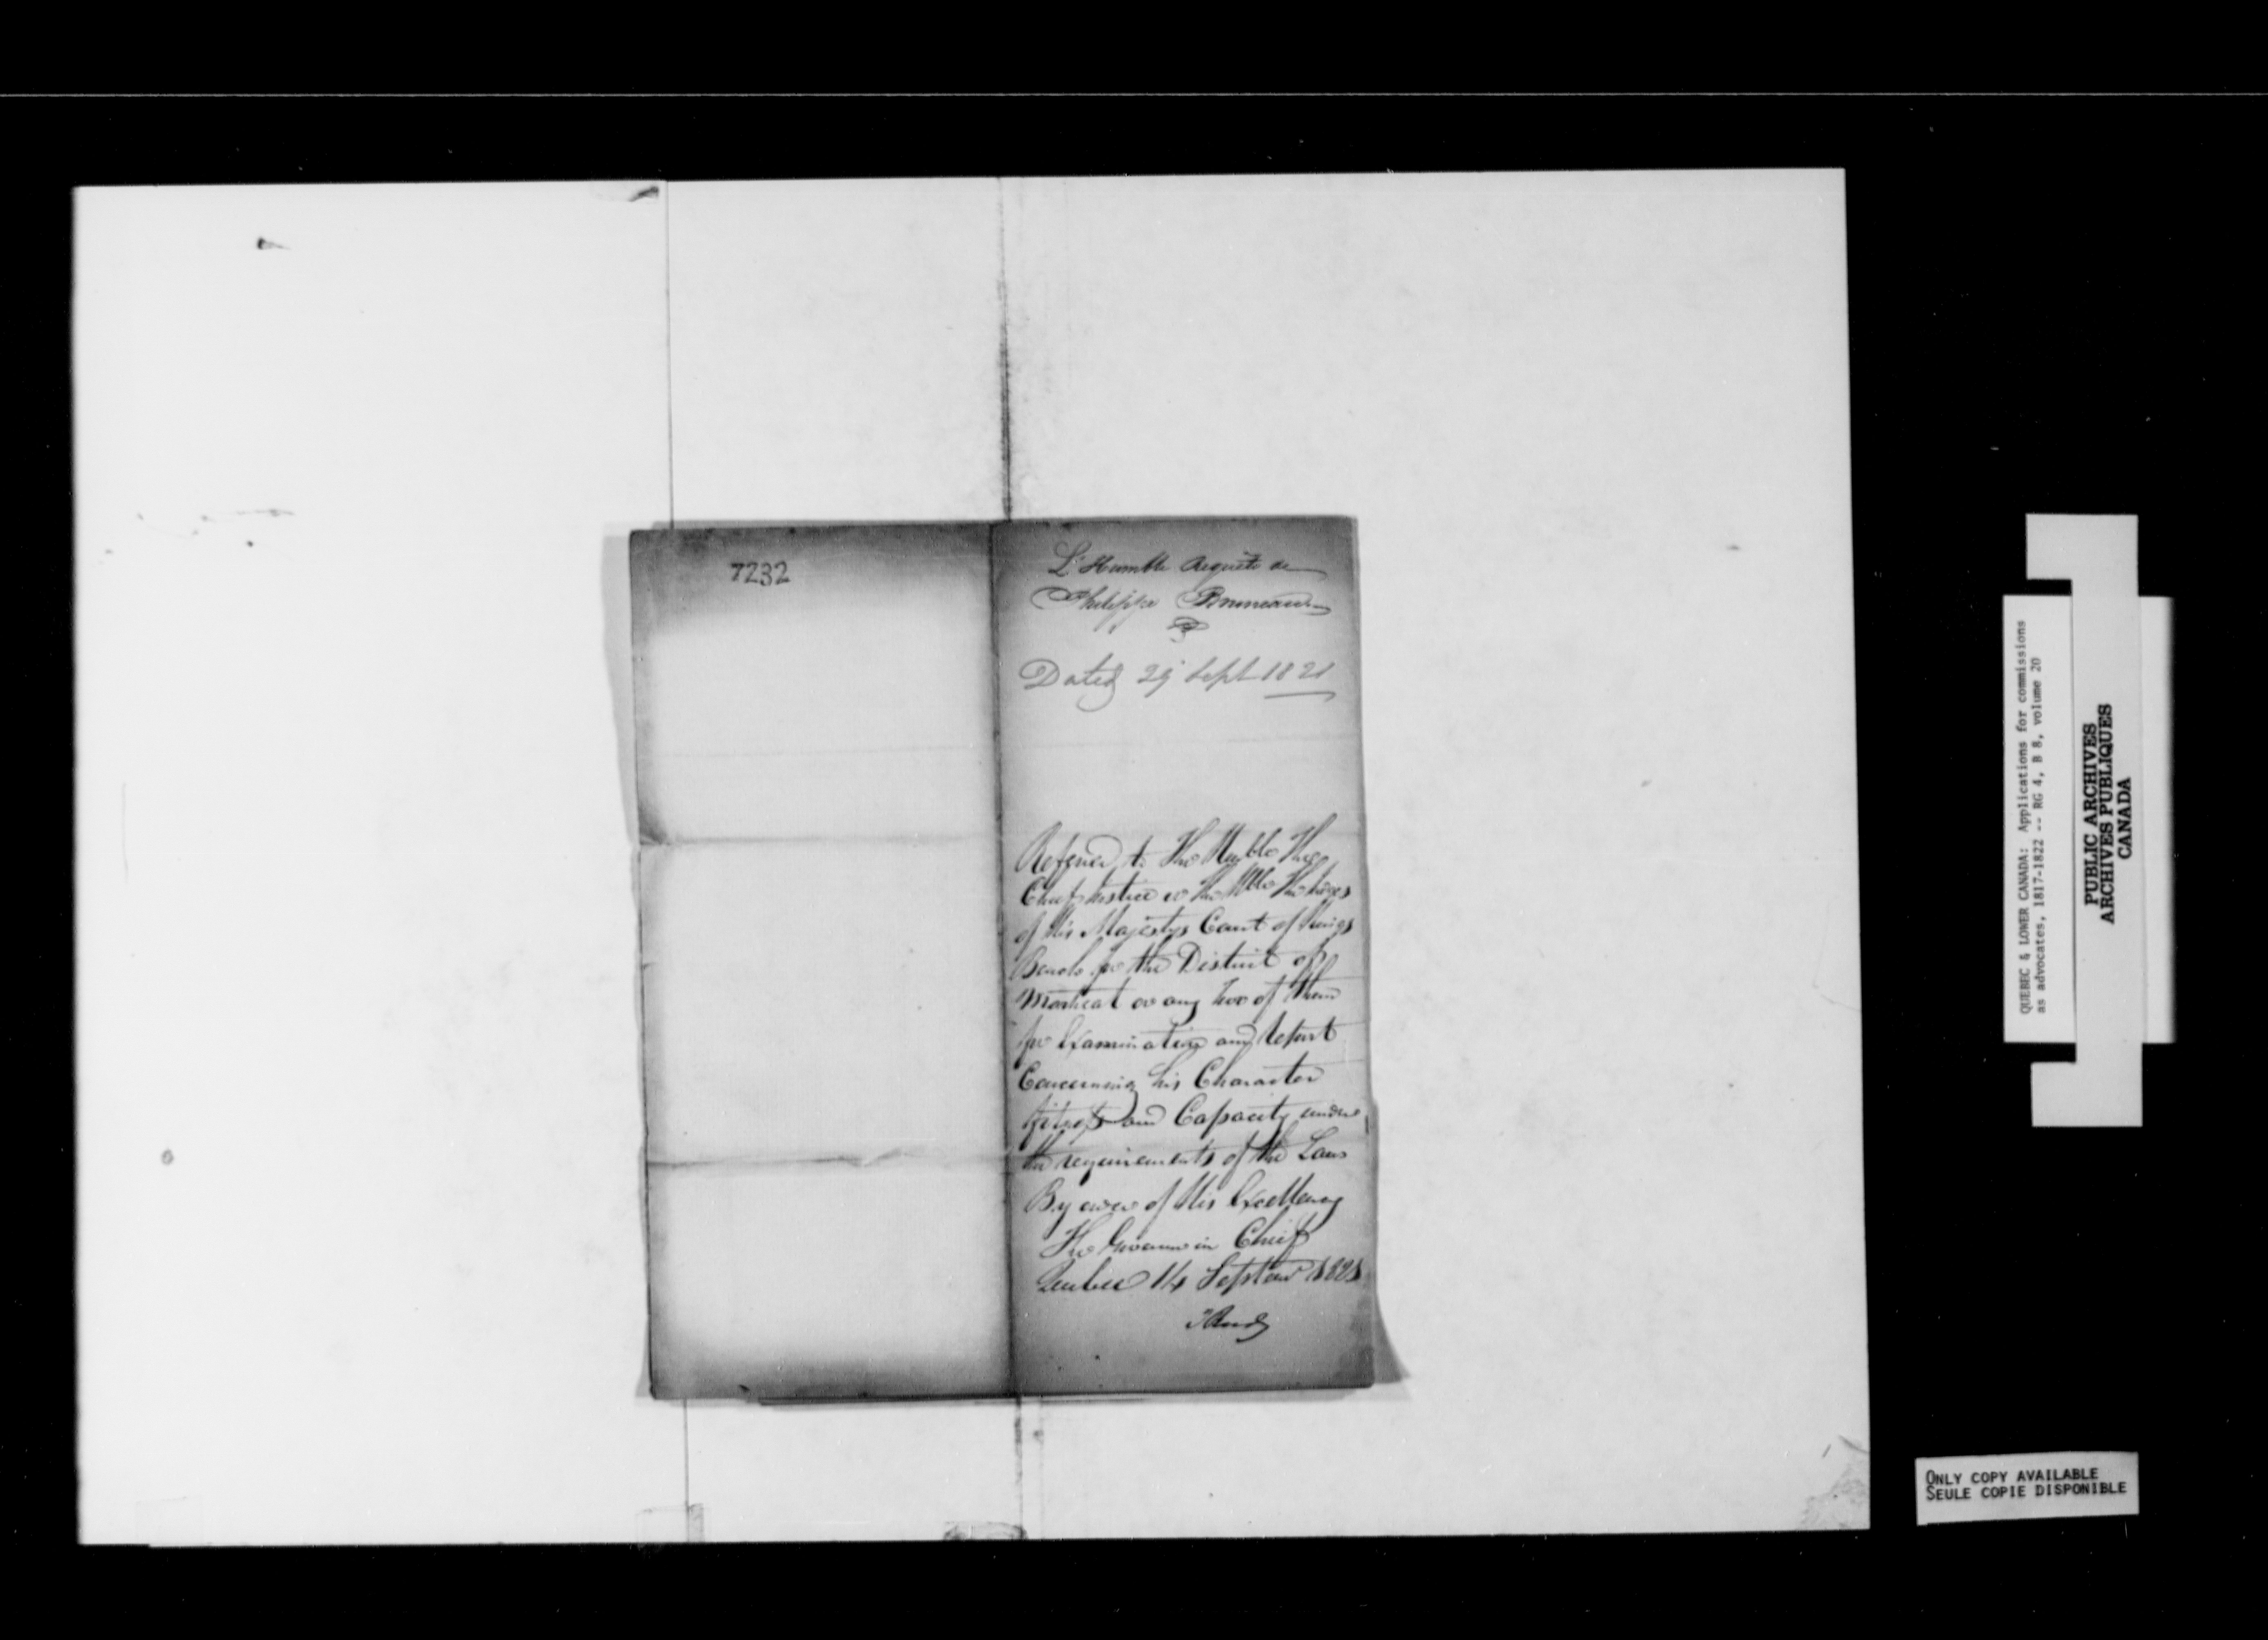 7232
L'Humble Requête de
Philippe Bruneau
Dated 29 Sept 1821
Referred to The Honble The
Chief Justice or the Honble The Judges
of His Majestys Court of Kings
Bench for the District of
Montreal or any two of them
for Examination and Report
Concerning his Character
fitness and Capacity under
the requirements of the Laws
By order of His Excellency
The Governor in Chief
Quebec 14 Septemr 1821
QUEBEC & LOWER CANADA: Applications for commissions
as advocates, 1817-1822 -- RG 4, B 8, volume 20
PUBLIC ARCHIVES
ARCHIVES PUBLIQUES
CANADA
ONLY COPY AVAILABLE
SEULE COPIE DISPONIBLE